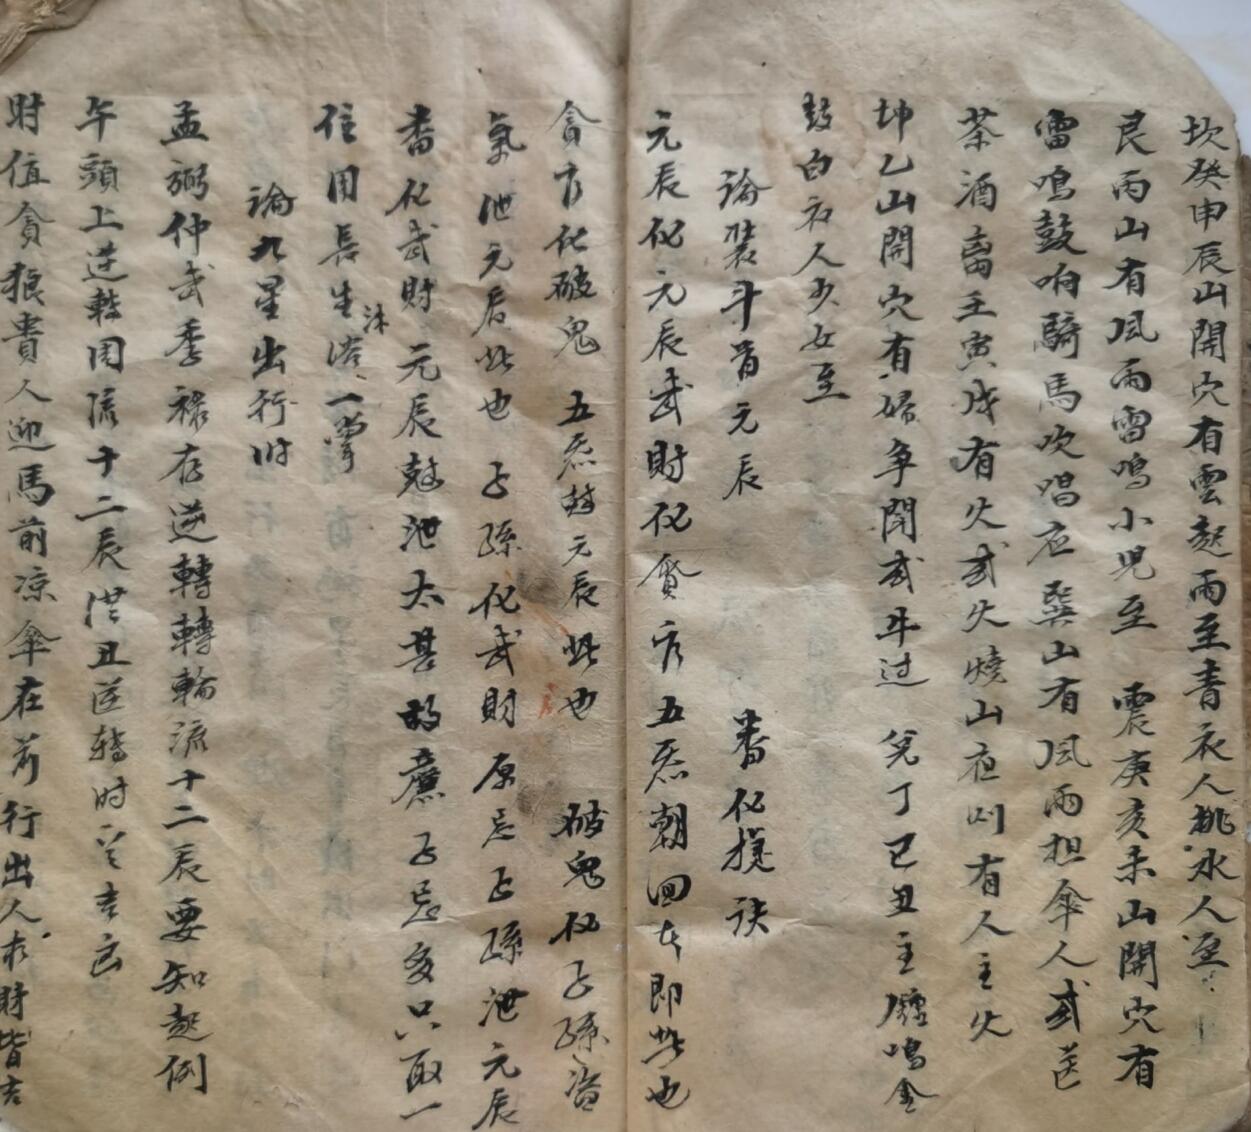 坎癸申辰山開穴有雲起雨至青衣人挑水人至
艮丙山有风雨雷鳴小児至 震庚亥未山開穴有
雷鳴鼓响騎馬吹唱应 巽山有风雨担傘人或送
茶酒畜主寅戌有火或火燒山应 有人主火
坤乙山開穴有婦争鬧或牛过 兌丁巳丑主鑼鳴金
鼓白衣人少女至
論裝斗首元辰 番化捷訣
元辰化元辰武財化貪官五炁朝回本即此也
貪官化破鬼 五炁尅元辰此也 破鬼化子孫盗
氣泄元辰此也 子孫化武財原忌子孫泄元辰
番化武財元辰尅泄太甚故 子忌多只取一
位用長生沐浴一掌
論九星出行时
孟弼仲武季祿存逆轉轉輪流十二辰要知起例
午頭上逆轉周流十二辰 丑逆轉时 吉凶
財值貪狼貴人迎馬前凉傘在前行出人求財皆吉